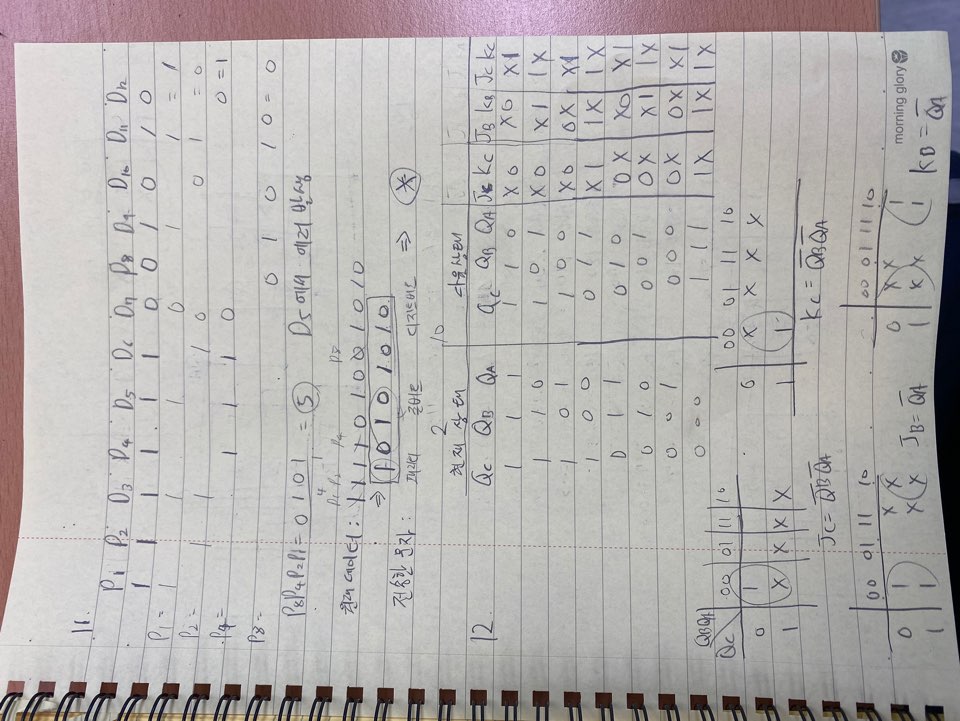 11.
P₁ P₂ D₃ P₄ D₅ D₆ D₇ P₈ D₉ D₁₀ D₁₁ D₁₂
1 1 1 1 1 1 0 0 1 0 1 0
P₁= 1 1 1 0 1 1 = 1
P₂= 1 1 1 0 0 1 = 0
P₄= 1 1 1 0 0 = 1
P₈= 0 1 0 1 0 = 0
P₈P₄P₂P₁ = 0 1 0 1 = 5 D₅에서 에러 발생
4 1
P₁ P₂ P₄ P₈
현재 데이터 : 1 1 1 1 0 1 0 0 1 0 1 0
⇒ 1 0 1 0 1 0 1 0
전송한 문자 : 패리티 존비트 디지트비트 ⇒ *
2 10
현재 상태 다음상태 J J J
12. Qc QB QA Qc QB QA Jc Kc JB KB Jc Kc
1 1 1 1 1 0 X 0 X 0 X 1
1 1 0 1 0 1 X 0 X 1 1 X
1 0 1 1 0 0 X 0 0 X X 1
1 0 0 0 1 1 X 1 1 X 1 X
0 1 1 0 1 0 0 X X 0 X 1
0 1 0 0 0 1 0 X X 1 1 X
0 0 1 0 0 0 0 X 0 X X 1
0 0 0 1 1 1 1 X 1 X 1 X
QBQA
Qc 00 01 11 10 00 01 11 10
0 1 0 X X X X
1 X X X X 1 1
Jc = Q̅B Q̅A Kc = Q̅B Q̅A
00 01 11 10 00 01 11 10
0 1 X X 0 X X 1
1 1 X X 1 X X 1
JB = Q̅A KB = Q̅A
morning glory